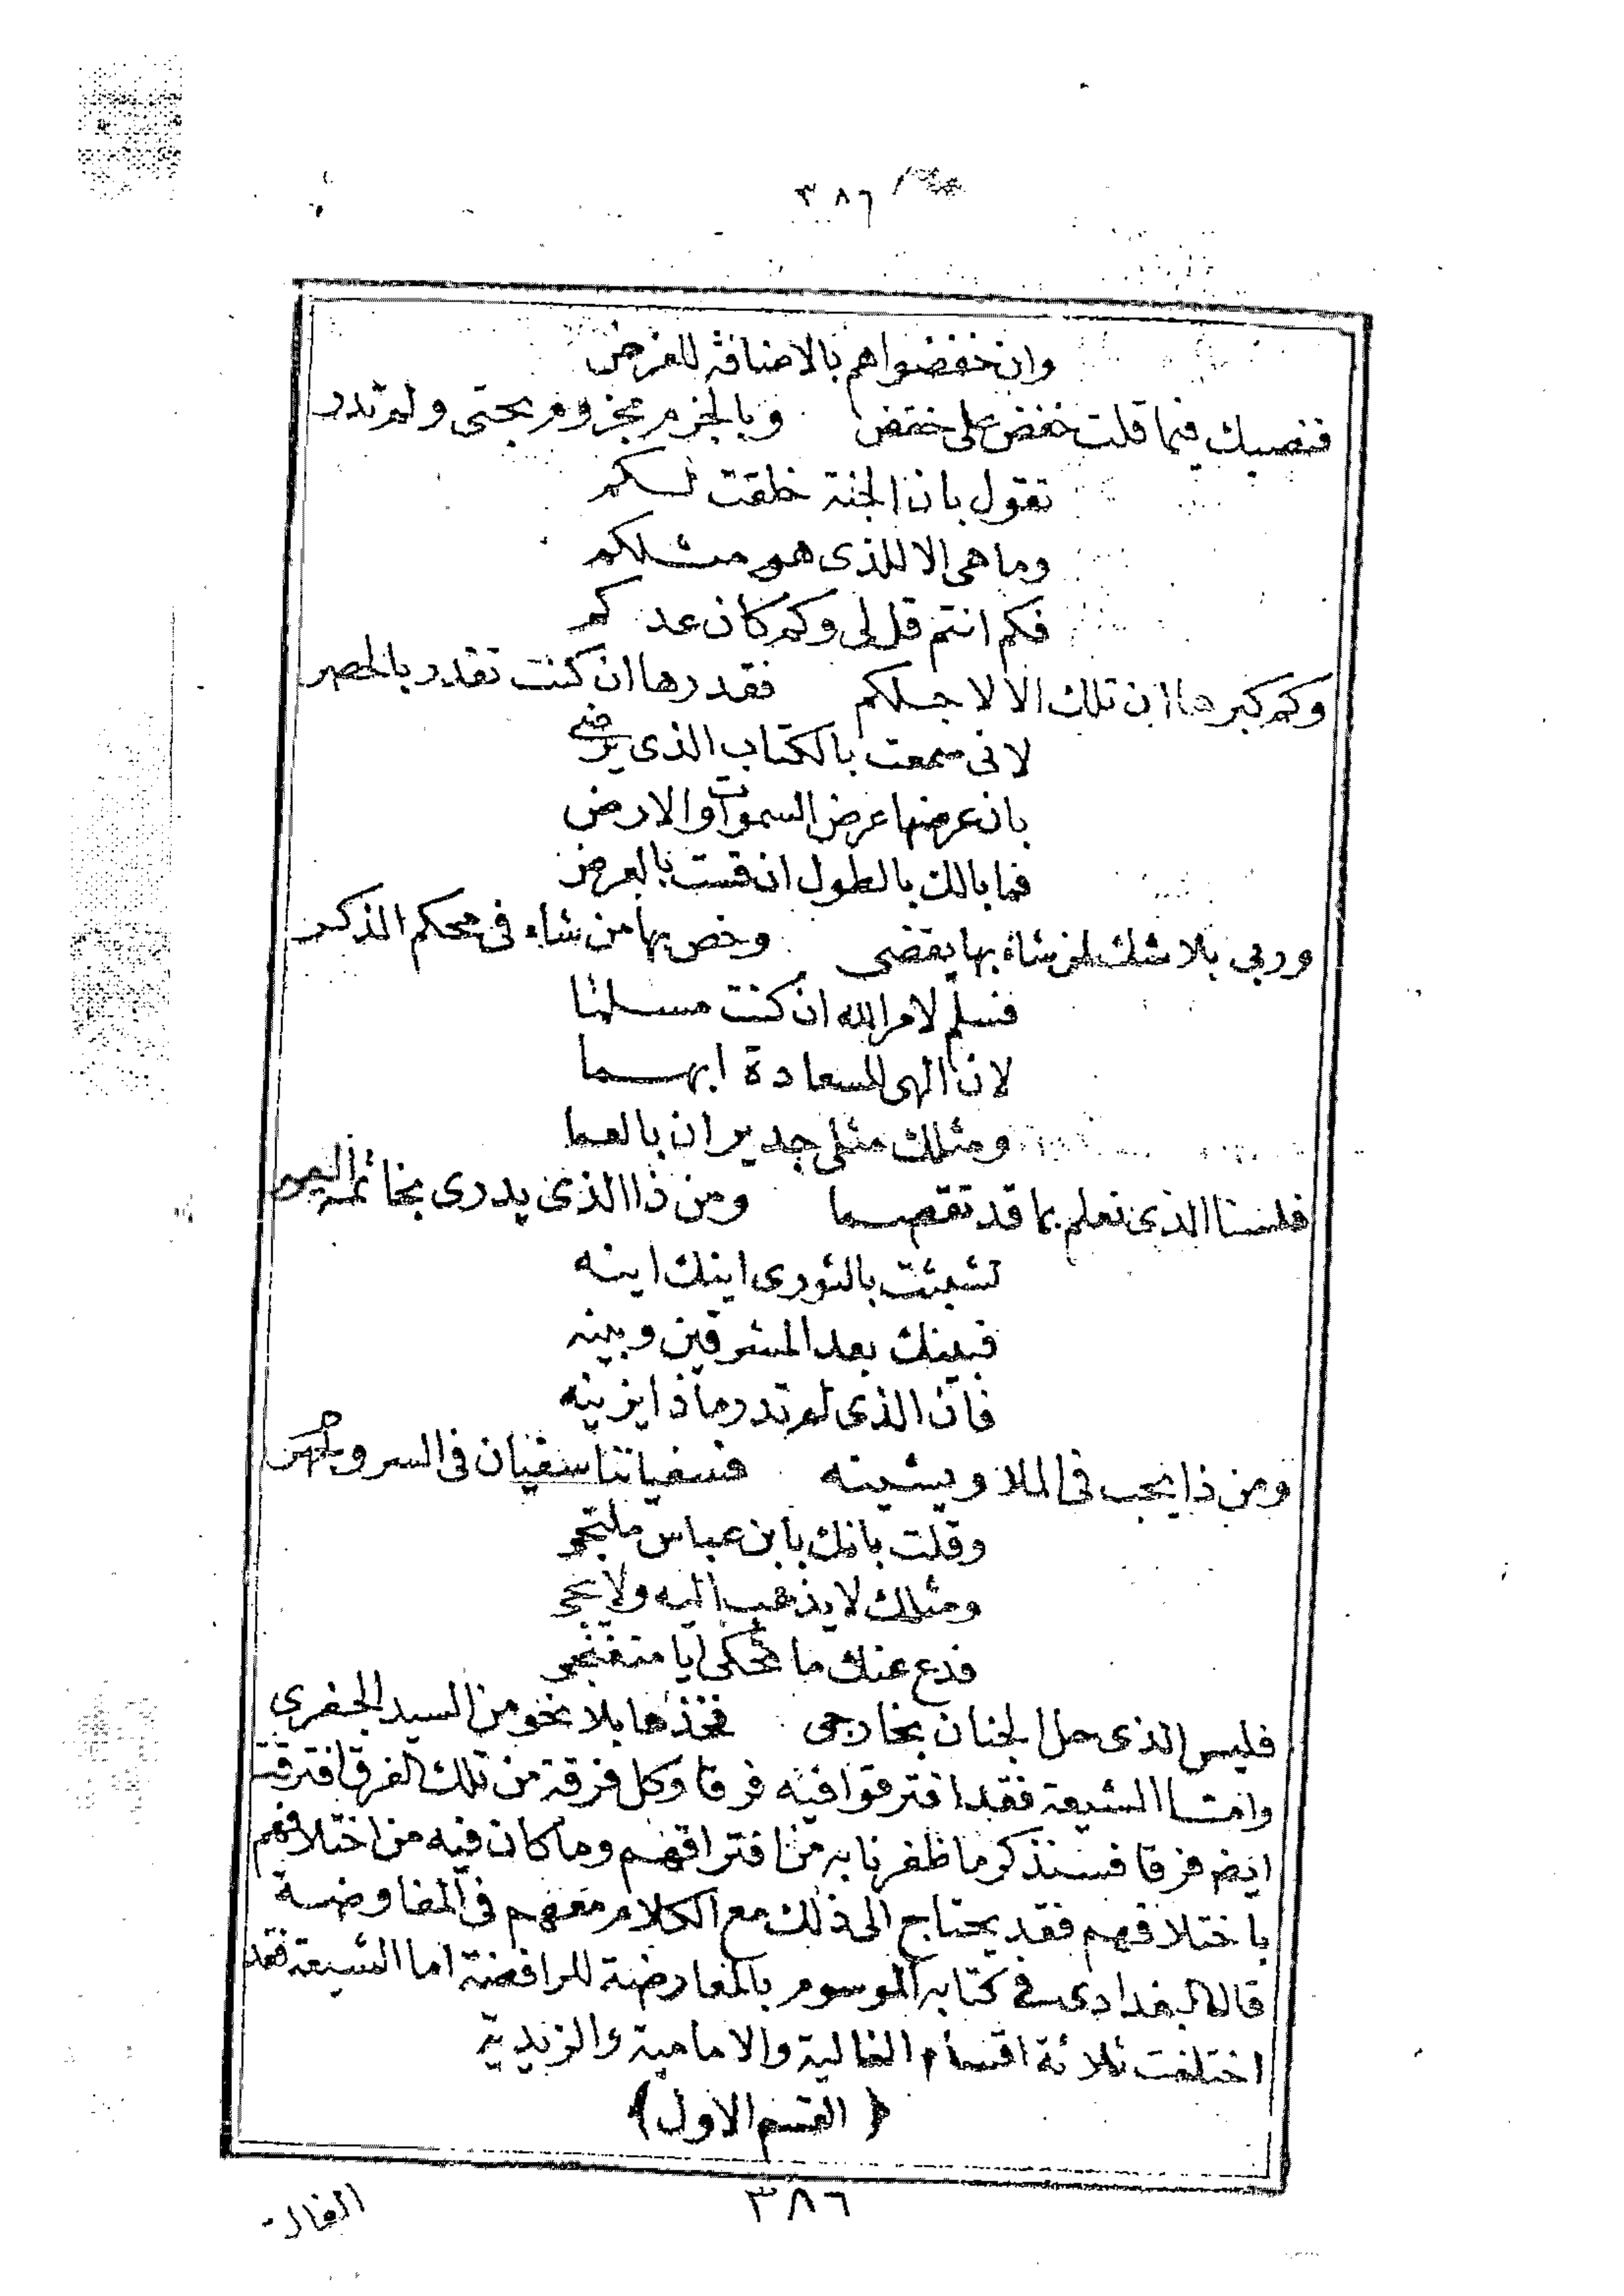 ٣٨٦
وان خفضواهم بالاضافة للفرض
فنصبك فيما قلت خفض على خفض وبالجزم مجزوم بجتى ولم تدر
تقول بان الجنة خلقت لسكم
وما هى الا للذى هو مشلكم
فكم انتم قل لى وكم كان عدكم
وكم كبرها ان تلك الا لاجلكم فقدرها ان كنت تقدر بالحصر
لانى سمعت بالكتاب الذى يرضى
بان عرضها عرض السموات والارض
فما بالك بالطول ان قست بالعرض
وربى بلا شك لمن شاء بها يقضى وخص بها من شاء فى محكم الذكر
فسلم لامر الله ان كنت مسلما
لان الهى للسعادة ابهما
ومثلك مثلى جديران بالعما
فلسنا الذى نعلم بما قد تقصما ومن ذا الذى يدرى بخاتمه
تشبثت بالثورى اينك اينه
فبينك بعد المشرقين وبينه
فان الذى لم تدر ماذا يزينه
ومن ذا يحب فى الملا ويشينه فسفياننا سفيان فى السر والجهر
وقلت بانك بابن عباس ملتجى
ومثلك لا يذهب اليه ولا يجى
فدع عنك ما تحكى ايا
فليس الذى حل الجنان بخارجى فخذها بلا نحو من السيد الجفرى
وامّا الشيعة فقد افترقوا فيه فرقا وكل فرقة من تلك الفرق افترقت
ايضم فرقا فسنذكر ما ظفرنا به من افتراقهم وما كان فيه من اختلافهم
باختلافهم فقد يحتاج الى ذلك مع الكلام معهم فى المفاوضة
قال البغدادى فى كتابه الموسوم بالمعارضة للرافضة اما الشيعة فقد
اختلفت ثلاثة اقسام الغالية والامامية والزيدية
﴿ القسم الاول ﴾
٣٨٦
الغالـ